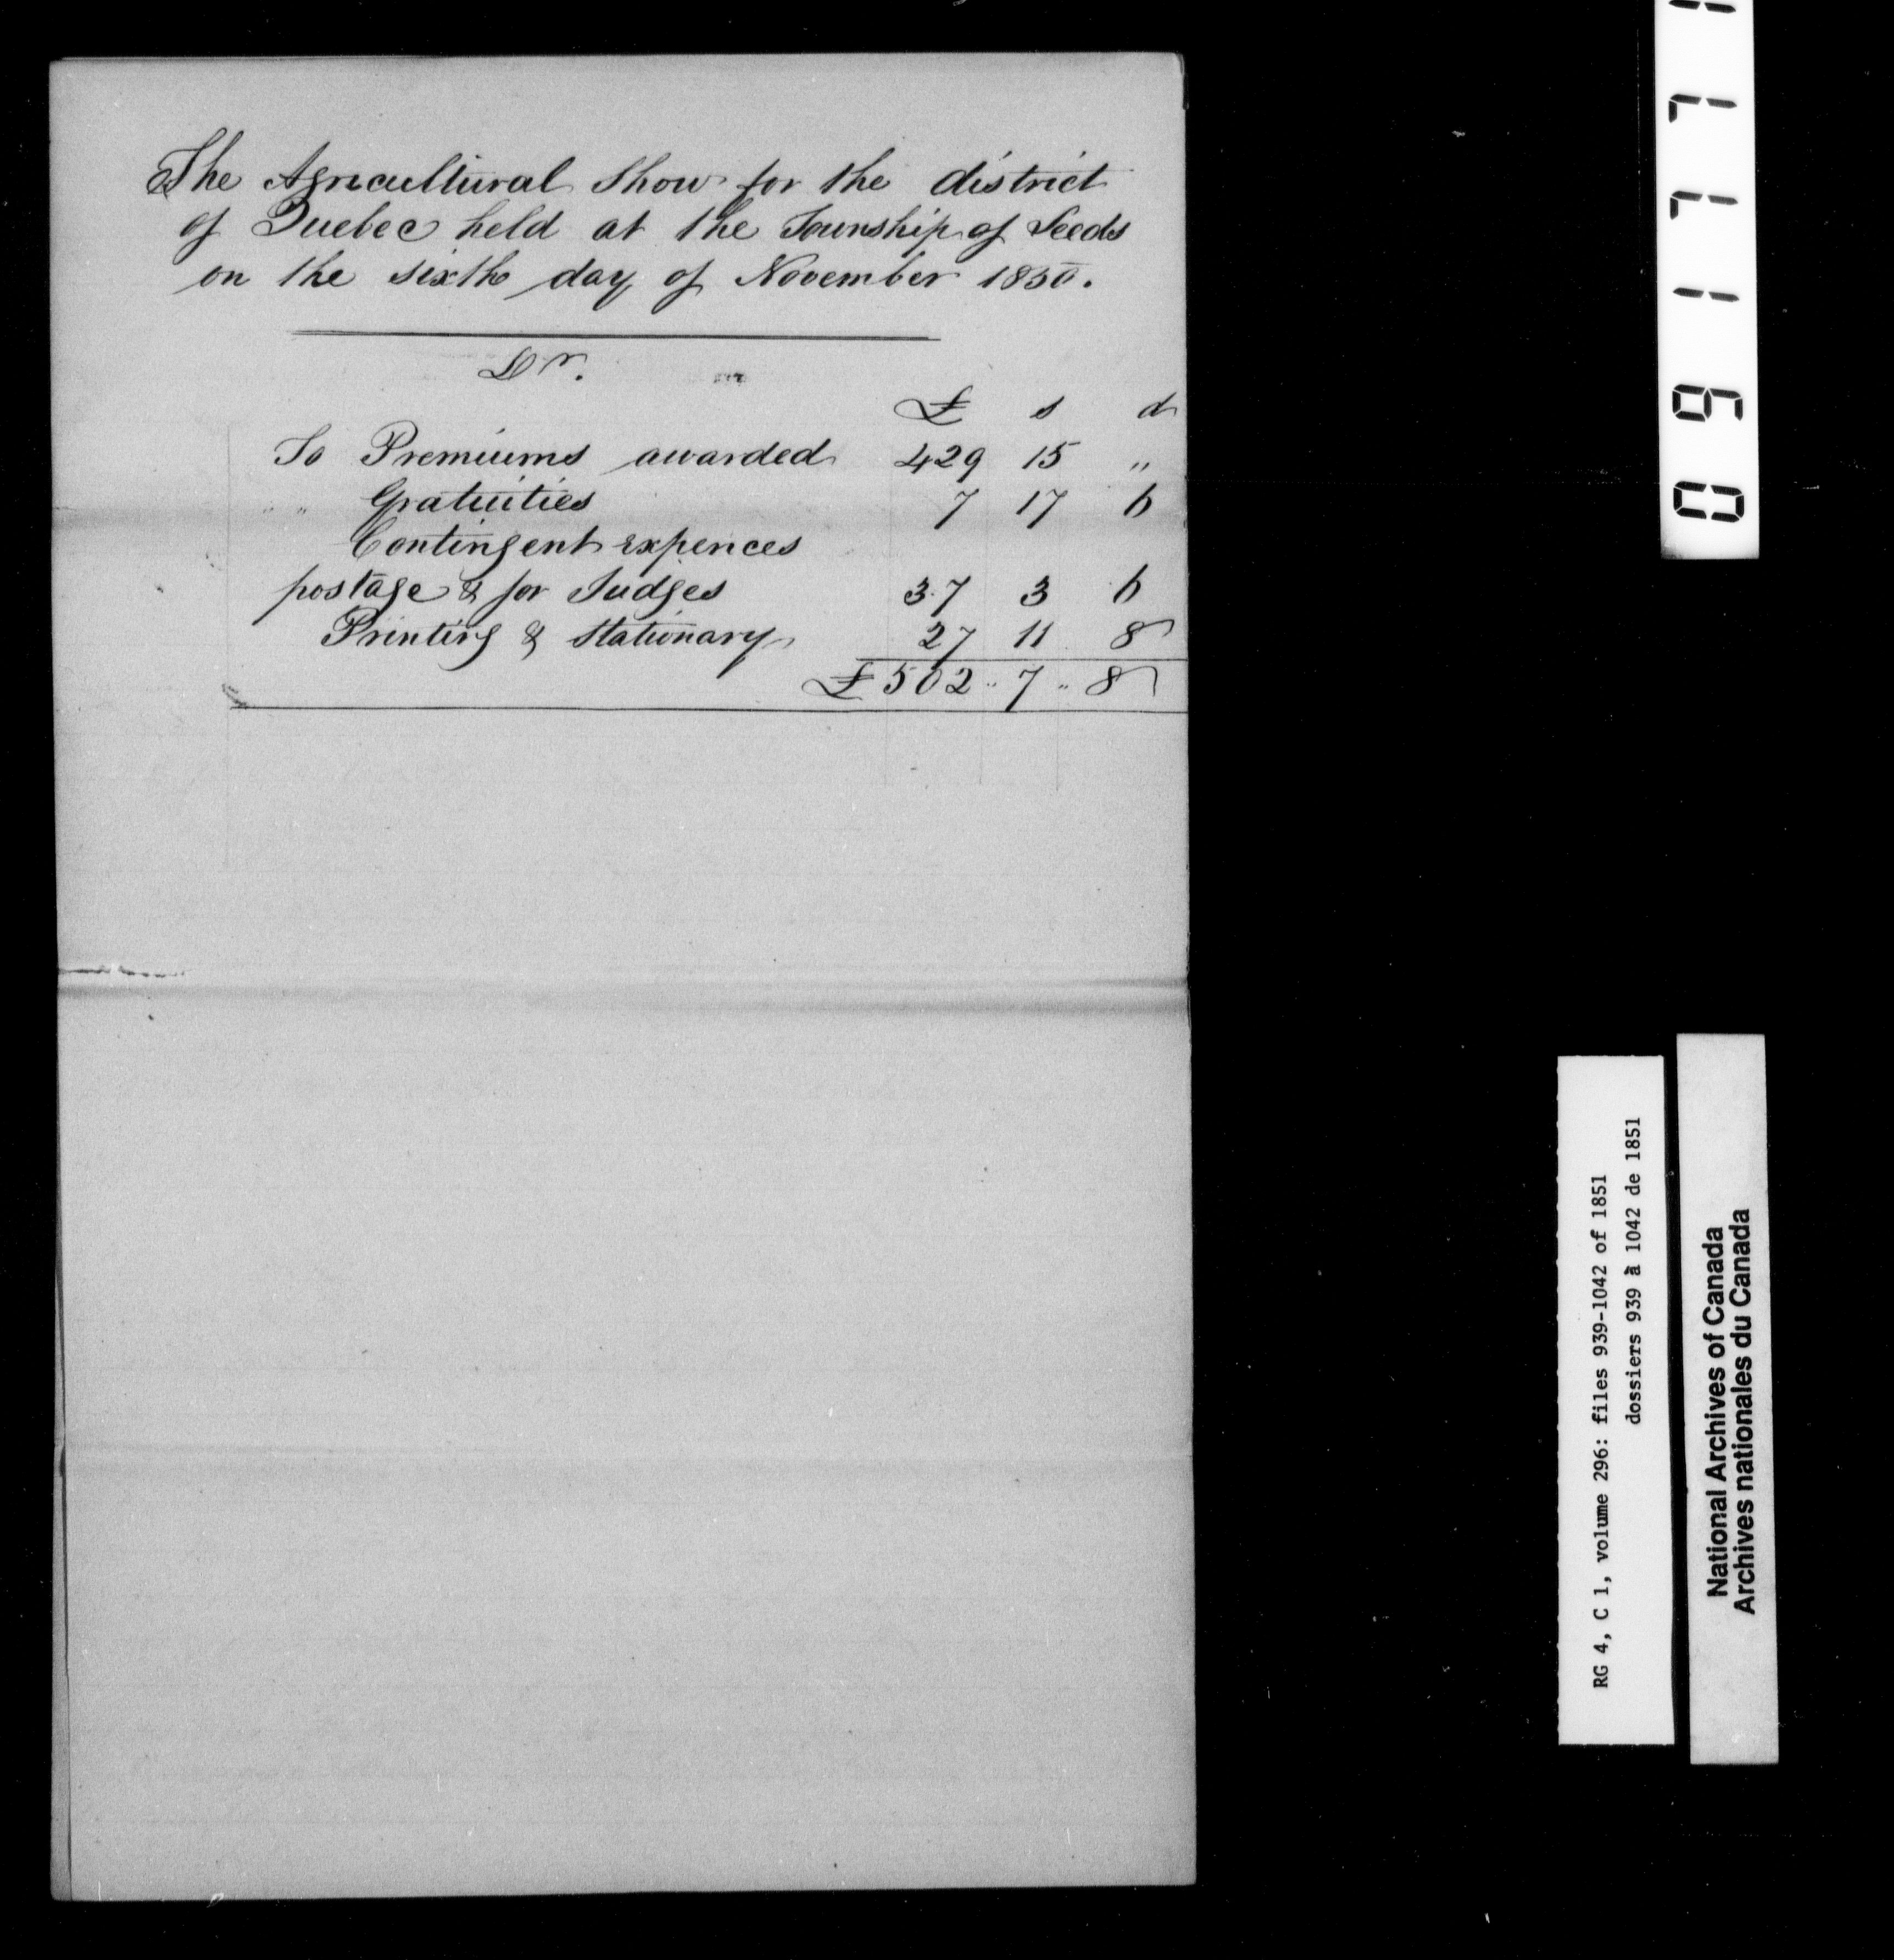 The Agricultural Show for the district
of Quebec held at the Township of Leeds
on the sixth day of November 1850.
Dr.
£ s d
To Premiums awarded 429 15 "
" Gratuities 7 17 6
Contingent expences
postage & for Judges 37 3 6
Printing & Stationary 27 11 8
£ 502 " 7 " 8
RG 4, C 1, volume 296: files 939-1042 of 1851
dossiers 939 à 1042 de 1851
National Archives of Canada
Archives nationales du Canada